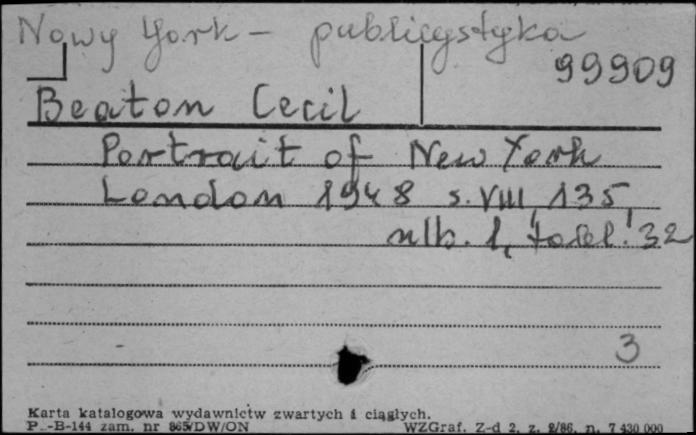 Nowy York - publicystyka
99909
Beaton Cecil
Portrait of New York
London 1948 s. VIII, 135,
nlb. 1, tabl. 32
3
Karta katalogowa wydawnictw zwartych i ciągłych.
P.-B-144 zam. nr 865/DW/ON WZGraf. Z-d 2. z. 2/86. n. 7 430 000